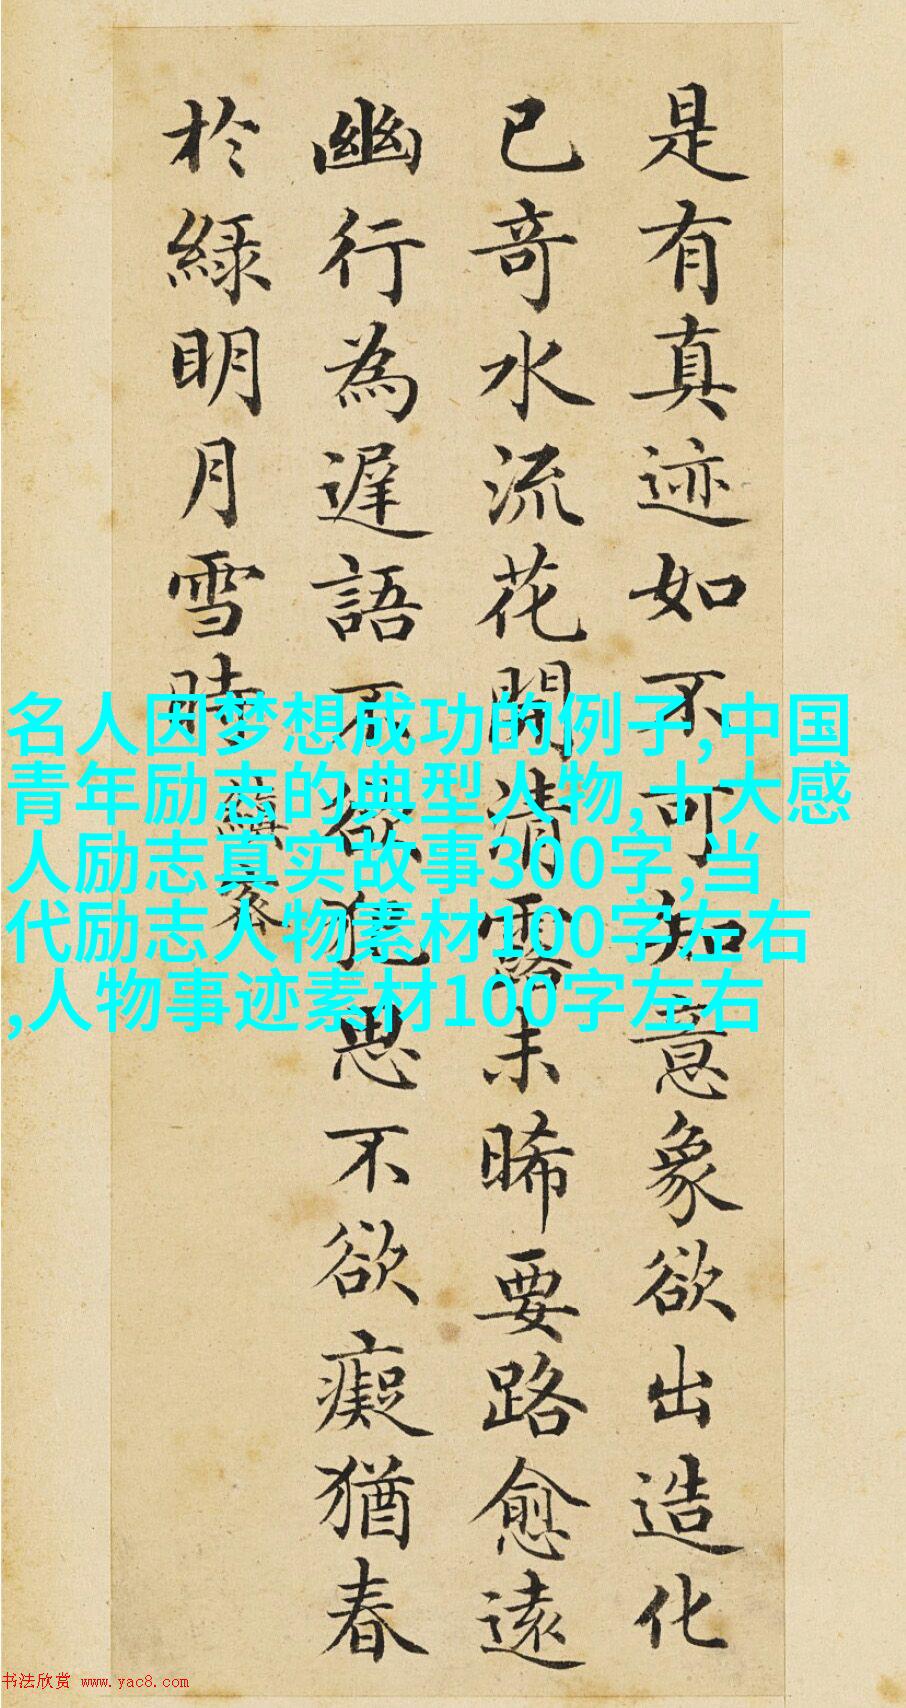 是有真迹如不可知意象欲出造化
已竒水流花開清露未晞要路愈遠
幽行為遲語不欲犯思不欲癡猶春
於綠明月雪時
名人因梦想成功的例子,中国
青年励志的典型人物,十大感
人励志真实故事300字,当
代励志人物素材100字左右
,人物事迹素材100字左右
书法欣赏 www.yac8.com